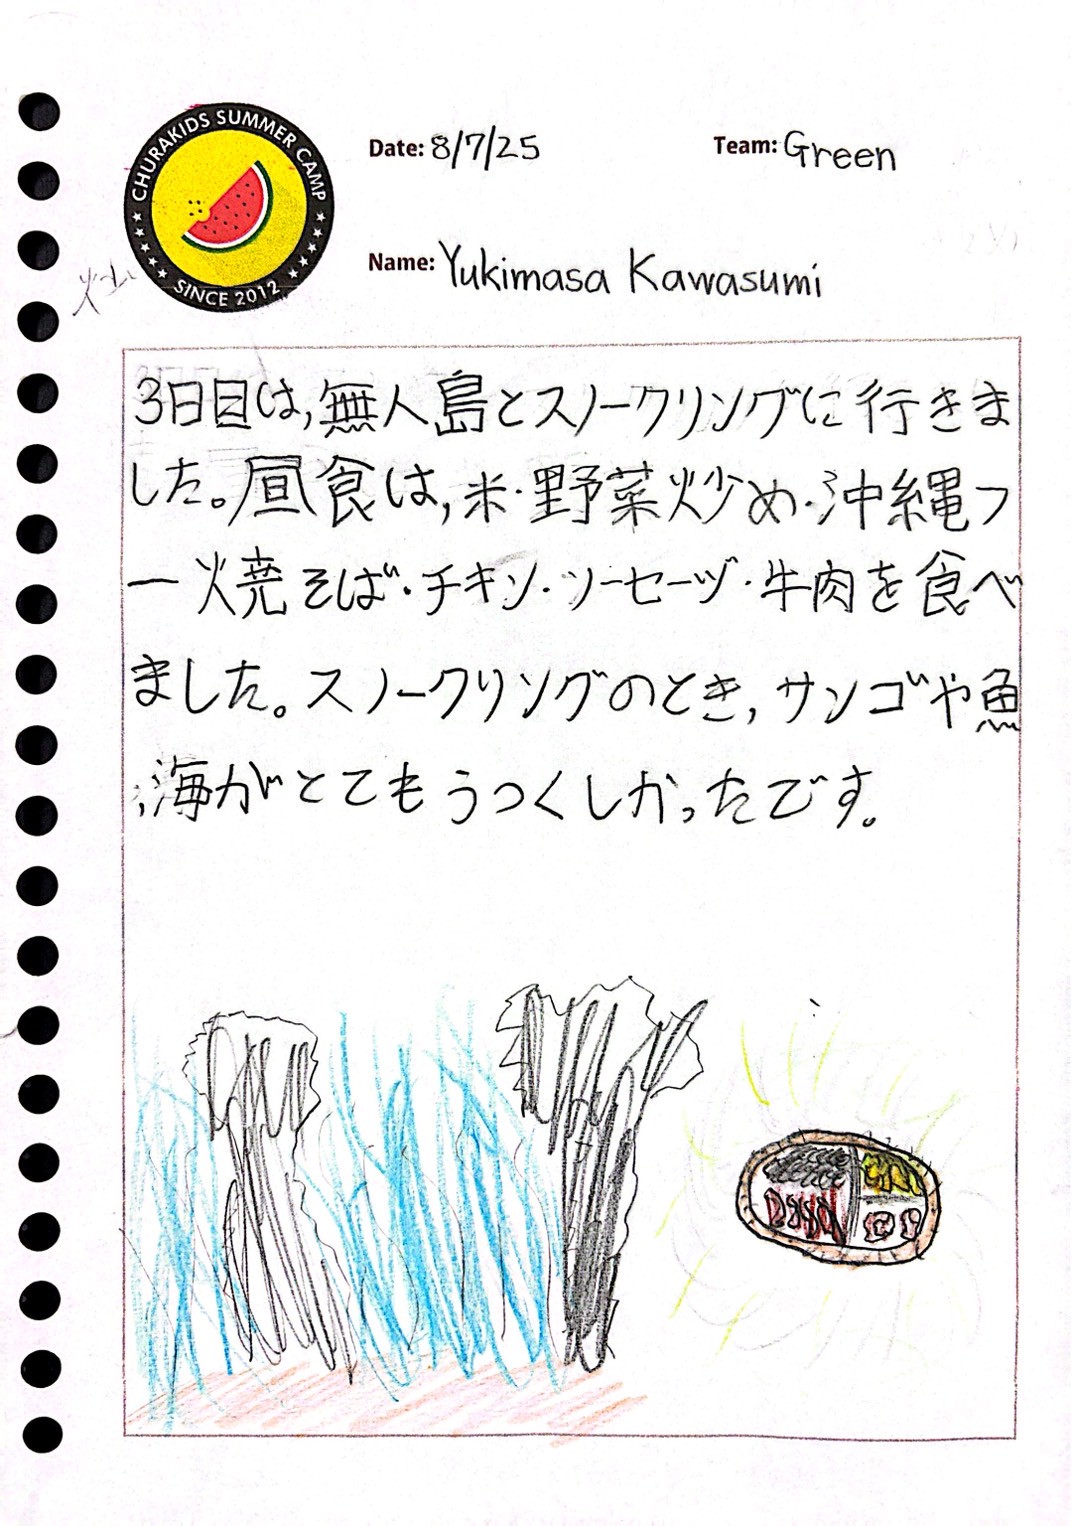 CHURAKIDS SUMMER CAMP
SINCE 2012
Date: 8/7/25
Team: Green
Name: Yukimasa Kawasumi
3日目は,無人島とスノークリングに行きま
した。昼食は,米·野菜炒め·沖縄フ
ー焼そば·チキン·ソーセージ·牛肉を食べ
ました。スノークリングのとき,サンゴや魚
,海がとてもうつくしかったです。